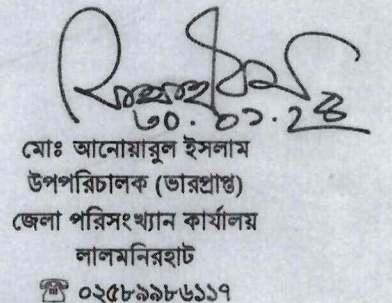 ৩০.০১.২৪
মোঃ আনোয়ারুল ইসলাম
উপপরিচালক (ভারপ্রাপ্ত)
জেলা পরিসংখ্যান কার্যালয়
লালমনিরহাট
☎ ০২৫৮৯৯৮৬১১৭